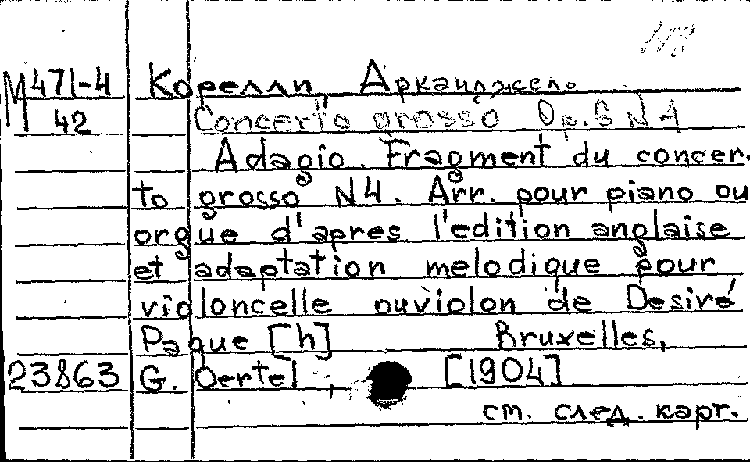 М471-4 Корелли, Арканджело.
42 Concerto grosso Op. 6 N 4
Adagio. Fragment du concer-
to grosso N4. Arr. pour piano ou
orgue d'apres l'edition anglaise
et adaptation melodique pour
violoncelle ou violon de Desiré
Paque [h] Bruxelles,
23863 G. Oertel, [1904]
см. след. карт.